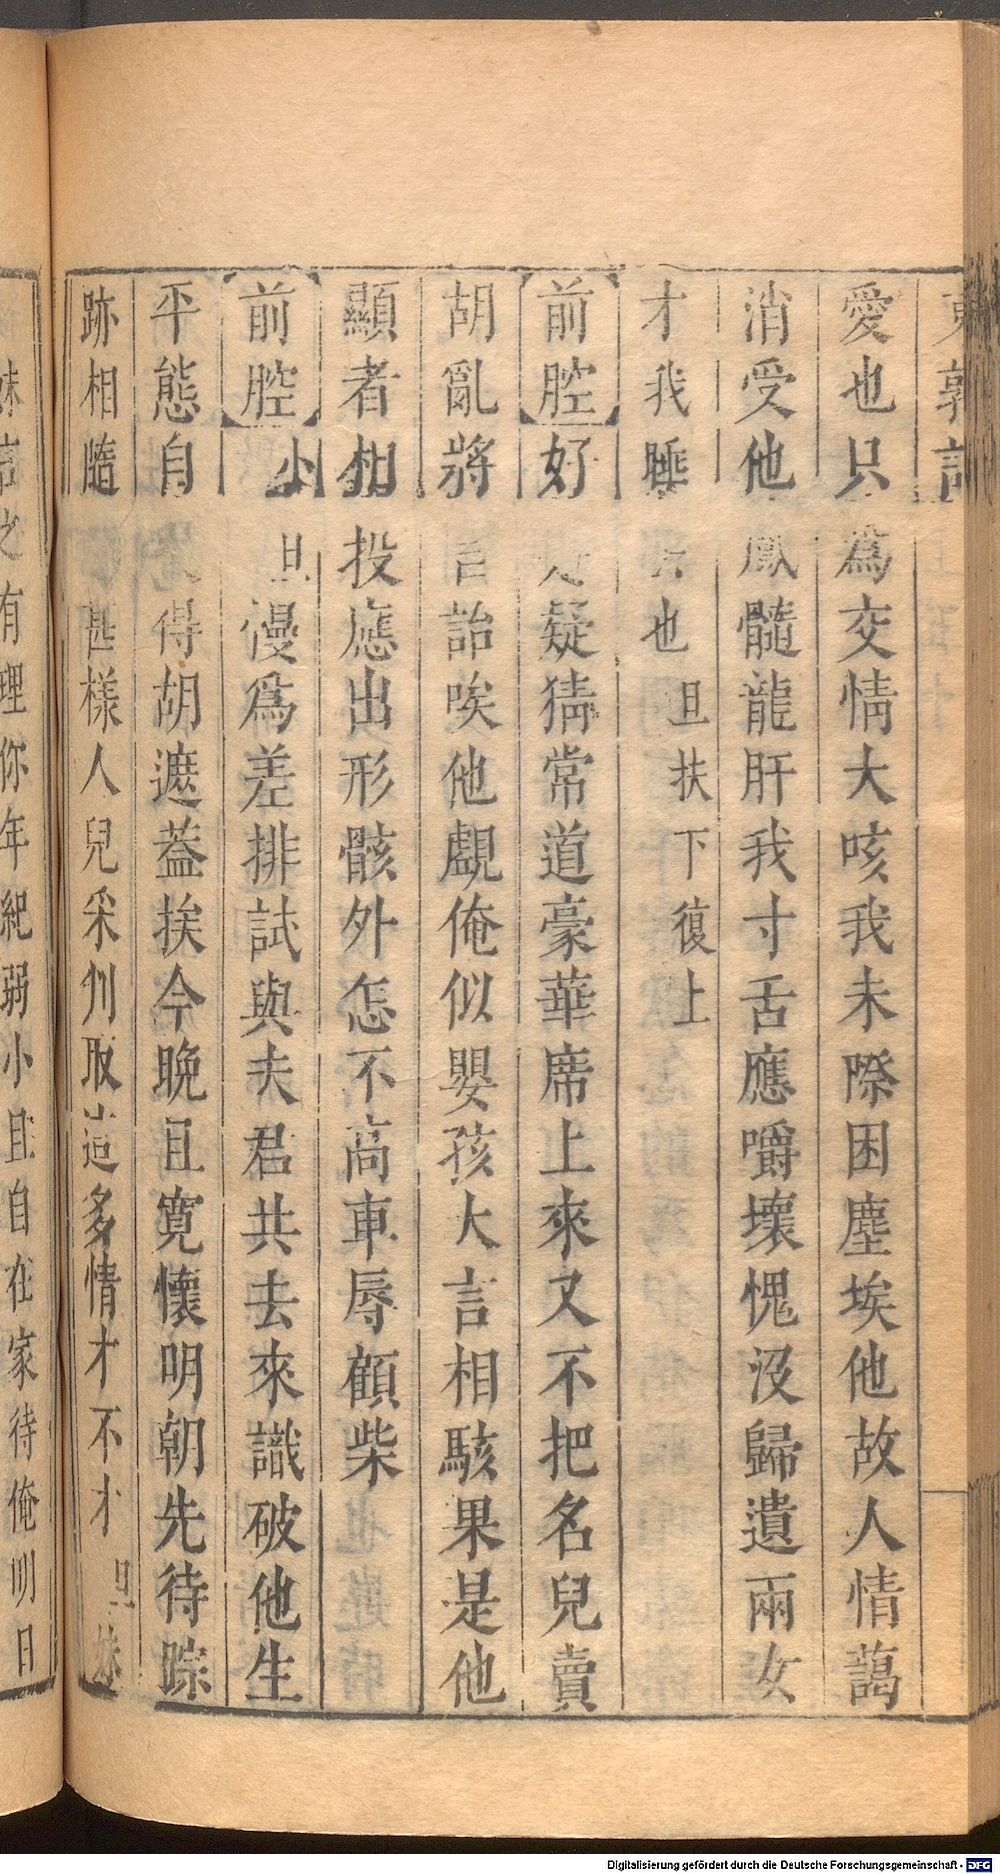 東郭記
愛也只爲交情大咳我未際困塵埃他故人情藹
消受他鳳髓龍肝我寸舌應嚼壞愧沒歸遺兩女
才我睡去也旦扶下復上
前腔好疑猜常道豪華席上來又不把名兒賣
胡亂將言詒唉他覷俺似嬰孩大言相駭果是他
顯者相投應出形骸外怎不高車辱顧柴
前腔小旦慢爲差排試與夫君共去來識破他生
平態自得胡遮蓋挨今晚且寛懷明朝先待踪
跡相隨甚樣人兒采州取這多情才不才旦妹
妹言之有理你年紀弱小且自在家待俺明日
Digitalisierung gefördert durch die Deutsche Forschungsgemeinschaft - DFG